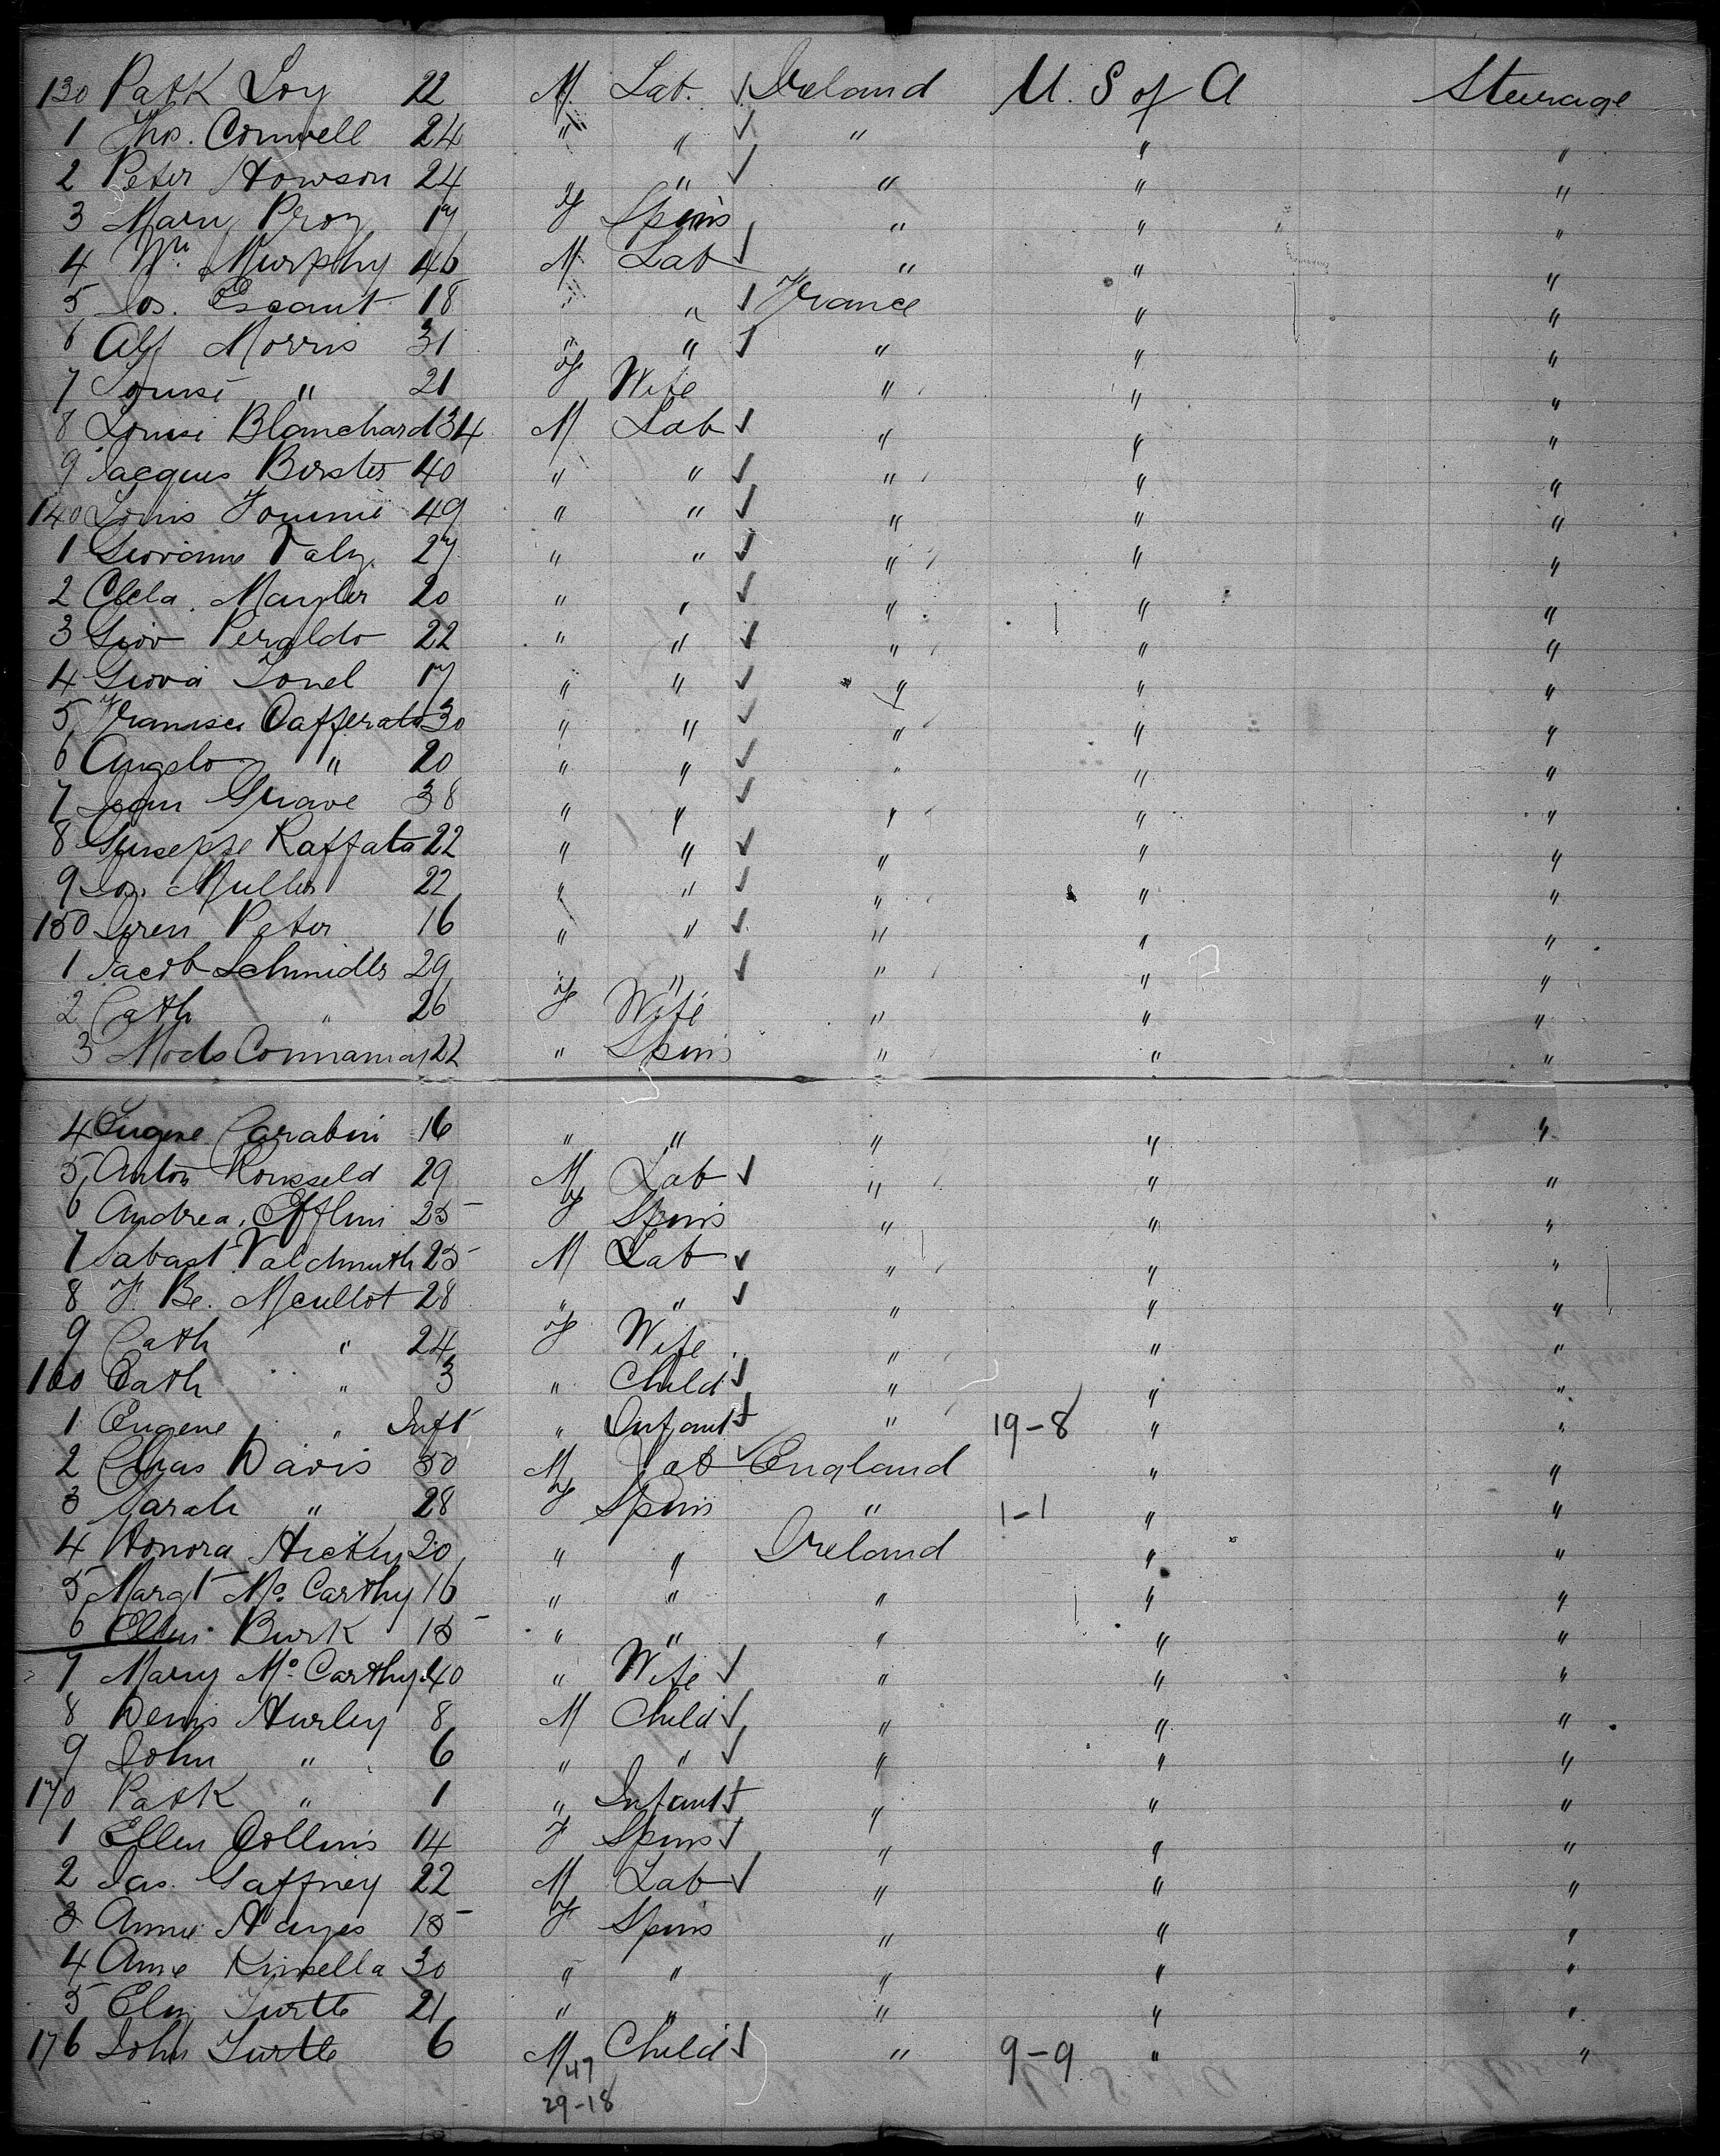 130 Patk Loy 22 M. Lab. ✓ Ireland U. S of A Steerage
1 Thos. Conwell 24 " " ✓ " " "
2 Peter Howson 24 " " ✓ " " "
3 Mary 17 F Spins " " "
4 Wm. Murphy 46 M Lab ✓ " " "
5 Jos. Escaut 18 " " ✓ France " "
6 Alf Morris 31 " " ✓ " " "
7 Louise " 21 F Wife " " "
8 Louise Blanchard 34 M Lab ✓ " " "
9 Jacques 40 " " ✓ " " "
140 Louis 49 " " ✓ " " "
1 27 " " ✓ " " "
2 20 " " ✓ " " "
3 Giov Peraldo 22 " " ✓ " " "
4 Giova 17 " " ✓ " " "
5 Cafferata 30 " " ✓ " " "
6 Angelo " 20 " " ✓ " " "
7 Jean Grave 38 " " ✓ " " "
8 Guiseppe Raffata 22 " " ✓ " " "
9 Jos. Muller 22 " " ✓ " " "
150 Peter 16 " " ✓ " " "
1 Jacob 29 " " ✓ " " "
2 Cath " 26 F Wife " " "
3 22 " Spins " " "
4 Eugene Carabini 16 " " " " "
5 Anton 29 M Lab ✓ " " "
6 Andrea 25 F Spins " " "
7 Sabast 25 M Lab ✓ " " "
8 F. Be. Mcullot 28 " " ✓ " " "
9 Cath " 24 F Wife " " "
160 Cath " 3 " Child ✓ " " "
1 Eugene " Inft " Infant ✓ " 19-8 " "
2 Chas Davis 50 M Lab ✓ England " "
3 Sarah " 28 F Spins " 1-1 " "
4 Honora Hickey 20 " " Ireland " "
5 Margt Mc Carthy 16 " " " " "
6 Ellen Burk 18 " " " " "
7 Mary Mc Carthy 40 " Wife ✓ " " "
8 Denis Hurley 8 M Child ✓ " " "
9 John " 6 " " ✓ " " "
170 Patk " 1 " Infant ✓ " " "
1 Ellen Collins 14 F Spins ✓ " " "
2 Jas. Gaffney 22 M Lab ✓ " " "
3 Annie Hayes 18 F Spins " " "
4 Anne Kinsella 30 " " " " "
5 Eliz Turtle 21 " " " " "
176 John Turtle 6 M Child ✓ " 9-9 " "
47
29-18